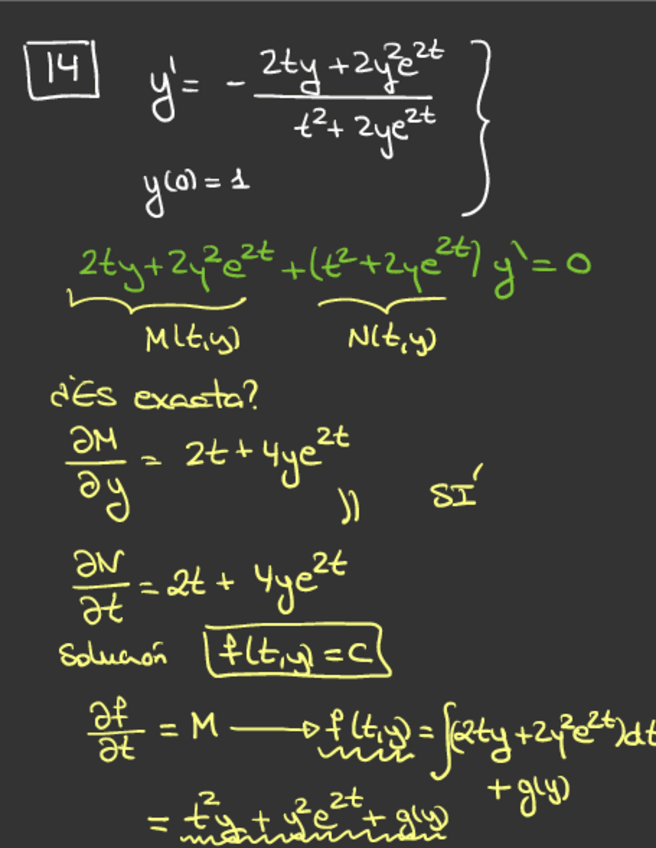 14 y' = - (2ty + 2y²e^{2t}) / (t² + 2ye^{2t}) }
y(0) = 1
2ty + 2y²e^{2t} + (t² + 2ye^{2t}) y' = 0
M(t,y) N(t,y)
¿Es exacta?
∂M/∂y = 2t + 4ye^{2t}
|| SÍ
∂N/∂t = 2t + 4ye^{2t}
Solución f(t,y) = C
∂f/∂t = M → f(t,y) = ∫(2ty + 2y²e^{2t})dt
+ g(y)
= t²y + y²e^{2t} + g(y)